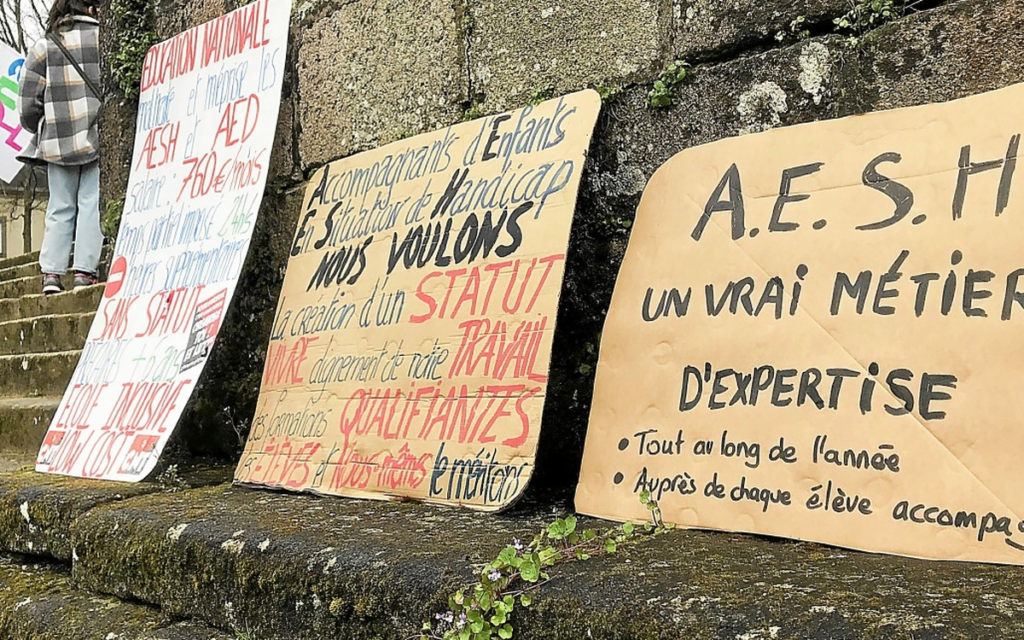 EDUCATION NATIONALE
maltraite et méprise les
AESH et AED
salaire : 760€/mois
temps partiel imposé 24h/s
heures supplémentaires
SANS STATUT
ECOLE INCLUSIVE
LOW COST
Accompagnants d'Enfants
En Situation de Handicap
NOUS VOULONS
la création d'un STATUT
VIVRE dignement de notre TRAVAIL
Des formations QUALIFIANTES
les ÉLÈVES et Nous-mêmes le méritons
A.E.S.H
UN VRAI MÉTIER
D'EXPERTISE
• Tout au long de l'année
• Auprès de chaque élève accompag